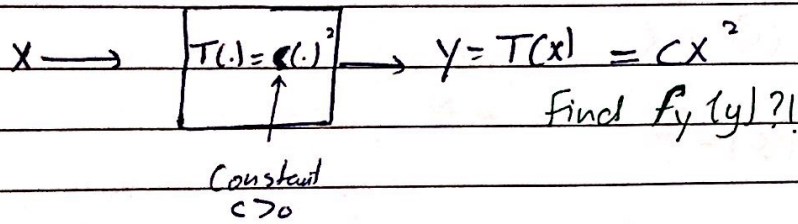 X → T(.) = c(.)² → Y = T(x) = cx²
Find fy(y)?!
Constant
c>0